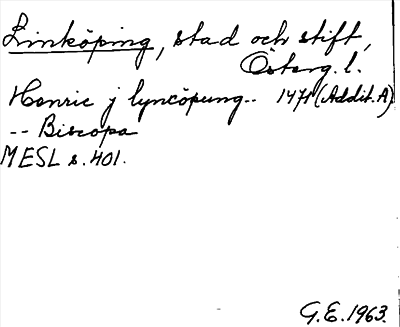 Linköping, stad och stift,
Österg. l.
Henric j lyncöpung -- 1471 (Addit. A)
-- Biscopa
MESL s. 401.
G.E. 1963.